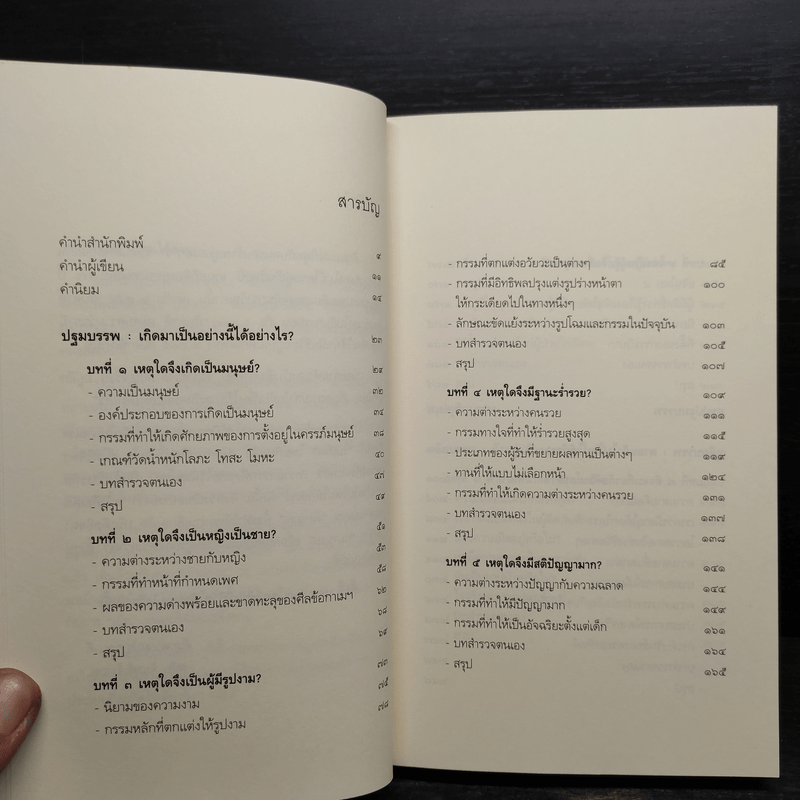 สารบัญ
คำนำสำนักพิมพ์ ๙
คำนำผู้เขียน ๑๑
คำนิยม ๑๔
ปฐมบรรพ : เกิดมาเป็นอย่างนี้ได้อย่างไร? ๒๓
บทที่ ๑ เหตุใดจึงเกิดเป็นมนุษย์? ๒๙
- ความเป็นมนุษย์ ๓๒
- องค์ประกอบของการเกิดเป็นมนุษย์ ๓๔
- กรรมที่ทำให้เกิดศักยภาพของการตั้งอยู่ในครรภ์มนุษย์ ๓๘
- เกณฑ์วัดน้ำหนักโลภะ โทสะ โมหะ ๔๐
- บทสำรวจตนเอง ๔๗
- สรุป ๔๙
บทที่ ๒ เหตุใดจึงเป็นหญิงเป็นชาย? ๕๑
- ความต่างระหว่างชายกับหญิง ๕๓
- กรรมที่ทำหน้าที่กำหนดเพศ ๕๘
- ผลของความด่างพร้อยและขาดทะลุของศีลข้อกาเมฯ ๖๒
- บทสำรวจตนเอง ๖๘
- สรุป ๖๙
บทที่ ๓ เหตุใดจึงเป็นผู้มีรูปงาม? ๗๓
- นิยามของความงาม ๗๕
- กรรมหลักที่ตกแต่งให้รูปงาม ๗๘
- กรรมที่ตกแต่งอวัยวะเป็นต่างๆ ๘๕
- กรรมที่มีอิทธิพลปรุงแต่งรูปร่างหน้าตา ๑๐๐
ให้กระเดียดไปในทางหนึ่งๆ
- ลักษณะขัดแย้งระหว่างรูปโฉมและกรรมในปัจจุบัน ๑๐๓
- บทสำรวจตนเอง ๑๐๕
- สรุป ๑๐๗
บทที่ ๔ เหตุใดจึงมีฐานะร่ำรวย? ๑๐๙
- ความต่างระหว่างคนรวย ๑๑๑
- กรรมทางใจที่ทำให้ร่ำรวยสูงสุด ๑๑๕
- ประเภทของผู้รับที่ขยายผลทานเป็นต่างๆ ๑๑๙
- ทานที่ให้แบบไม่เลือกหน้า ๑๒๔
- กรรมที่ทำให้เกิดความต่างระหว่างคนรวย ๑๓๑
- บทสำรวจตนเอง ๑๓๗
- สรุป ๑๓๘
บทที่ ๕ เหตุใดจึงมีสติปัญญามาก? ๑๔๑
- ความต่างระหว่างปัญญากับความฉลาด ๑๔๔
- กรรมที่ทำให้มีปัญญามาก ๑๔๙
- กรรมที่ทำให้เป็นอัจฉริยะตั้งแต่เด็ก ๑๖๑
- บทสำรวจตนเอง ๑๖๔
- สรุป ๑๖๕